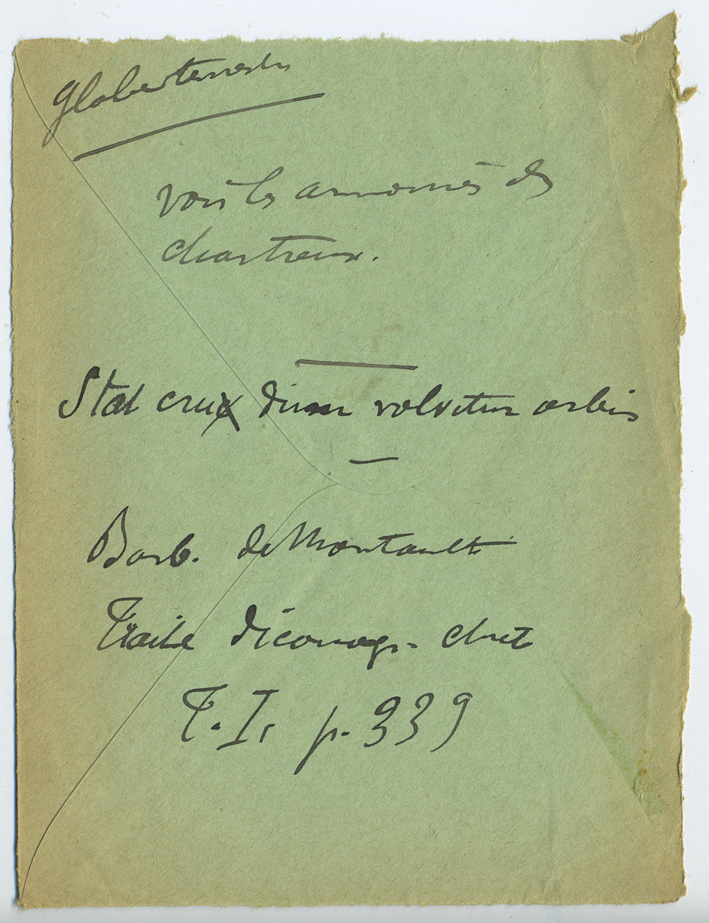 Globe terrestre
voir les armoiries des
chartreux.
Stat crux dum volvitur orbis
Barb. de Montault
Traité d'iconogr. chret
T. I, p. 339